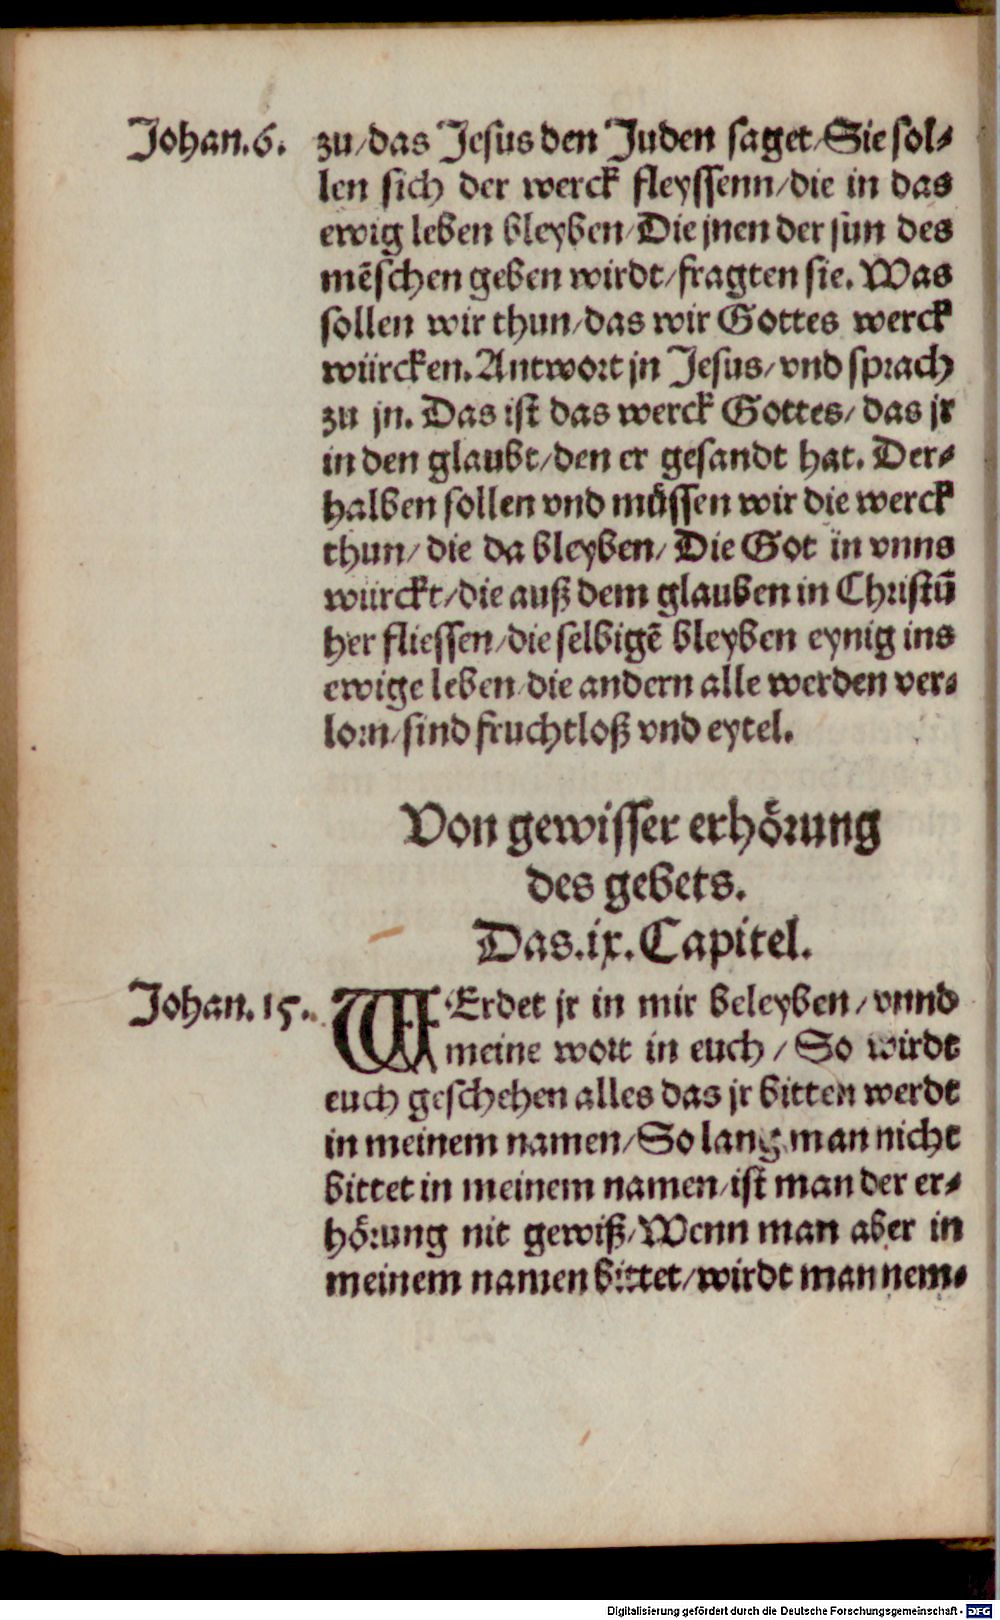 Johan.6. zu/das Jesus den Juden saget/Sie sol⸗
len sich der werck fleyssenn/die in das
ewig leben bleyben/Die jnen der sun des
mēschen geben wirdt/fragten sie. Was
sollen wir thun/das wir Gottes werck
würcken. Antwort jn Jesus/vnd sprach
zu jn. Das ist das werck Gottes/das jr
in den glaubt/den er gesandt hat. Der⸗
halben sollen vnd müssen wir die werck
thun/die da bleyben/Die Got in vnns
würckt/die auß dem glauben in Christū
her fliessen/die selbigē bleyben eynig ins
ewige leben/die andern alle werden ver⸗
lorn/sind fruchtloß vnd eytel.
Von gewisser erhörung
des gebets.
Das.ix.Capitel.
Johan.15. WErdet jr in mir beleyben/vnnd
meine wort in euch/So wirdt
euch geschehen alles das jr bitten werdt
in meinem namen/So lang man nicht
bittet in meinem namen/ist man der er⸗
hörung nit gewiß/Wenn man aber in
meinem namen bittet/wirdt man nem⸗
Digitalisierung gefördert durch die Deutsche Forschungsgemeinschaft - DFG